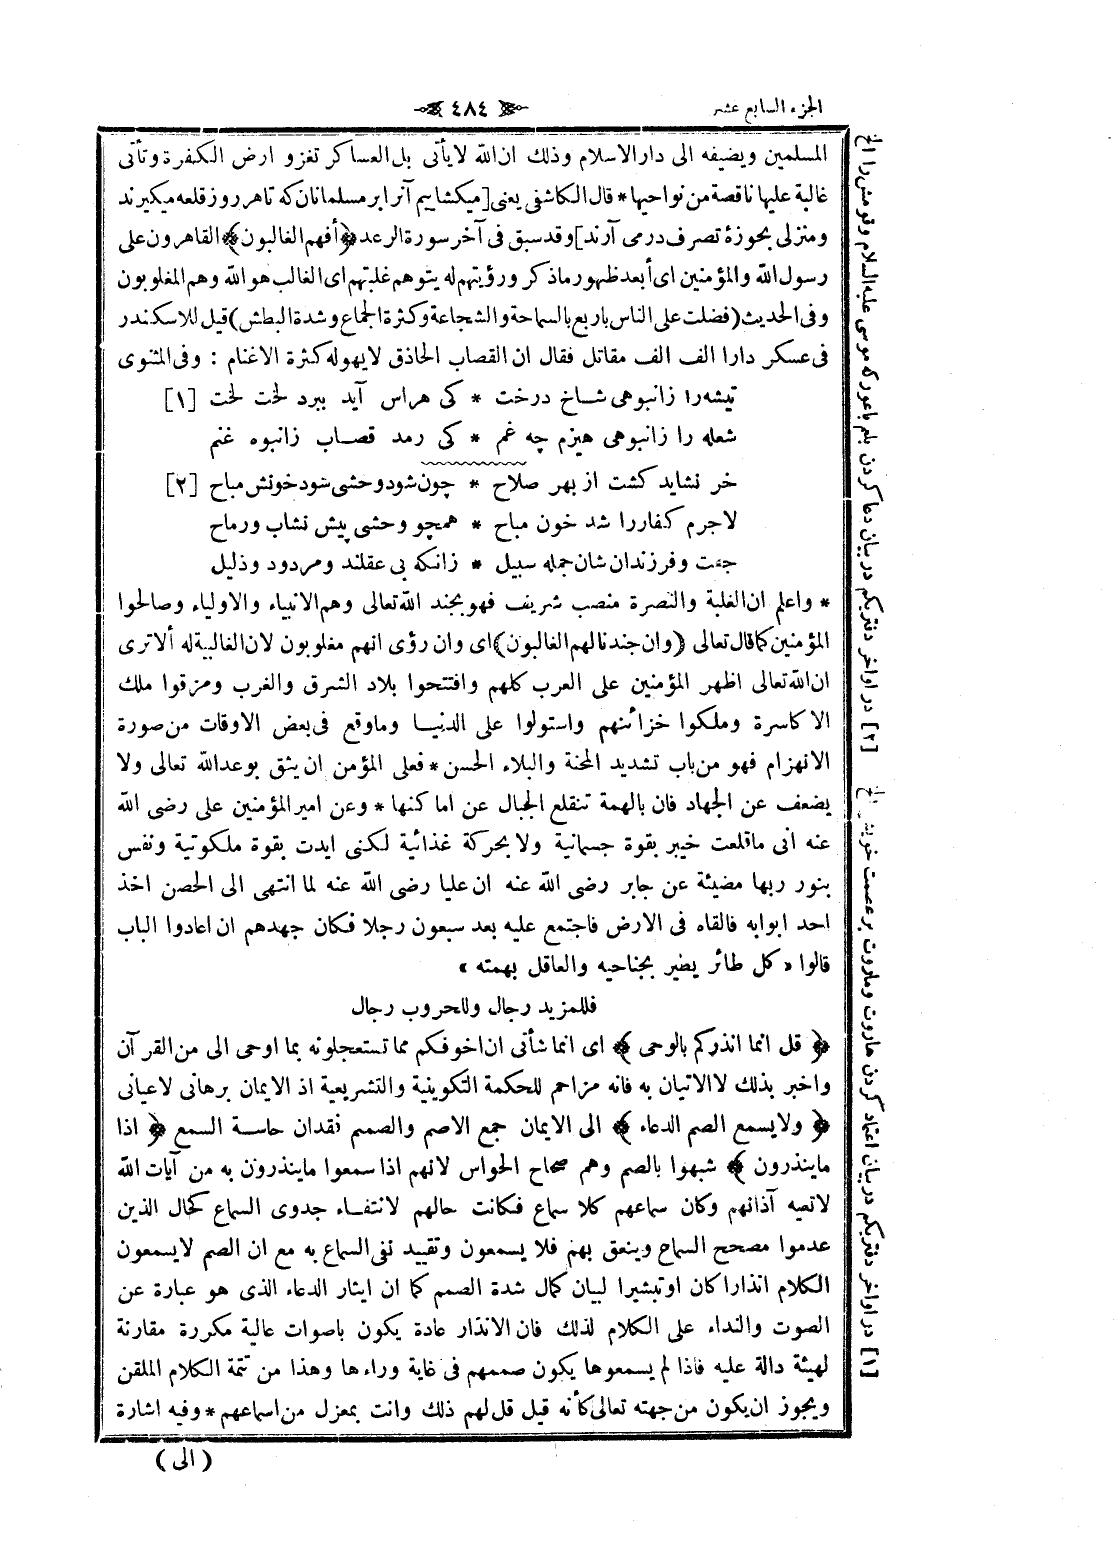 الجزء السابع عشر
﴿ ٤٨٤ ﴾
المسلمين ويضيفه الى دار الاسلام وذلك ان الله لا يأتى بل العساكر تغزو ارض الكفرة وتأتى
غالبة عليها ناقصة من نواحيها * قال الكاشفى يعنى [ ميكشاييم آنرا بر مسلمانان كه تا هر روز قلعه ميكيرند
ومنزلى بحوزۀ تصرف درمى آرند ] وقد سبق فى آخر سورة الرعد ﴿ أفهم الغالبون ﴾ القاهرون على
رسول الله والمؤمنين اى أبعد ظهور ما ذكر ورؤيتهم له يتوهم غلبتهم اى الغالب هو الله وهم المغلوبون
وفى الحديث ( فضلت على الناس باربع بالسماحة والشجاعة وكثرة الجماع وشدة البطش ) قيل للاسكندر
فى عسكر دارا الف الف مقاتل فقال ان القصاب الحاذق لا يهوله كثرة الاغنام : وفى المثنوى
تيشه را زانبوهى شاخ درخت * كى هراس آيد ببرد لخت لخت [١]
شعله را زانبوهى هيزم چه غم * كى رمد قصاب زانبوه غنم
خر نشايد كشت از بهر صلاح * چون شود وحشى شود خونش مباح [٢]
لاجرم كفاررا شد خون مباح * همچو وحشى پيش نشاب ورماح
جفت وفرزندان شان جمله سبيل * زانكه بى عقلند ومردود وذليل
* واعلم ان الغلبة والنصرة منصب شريف فهو بجند الله تعالى وهم الانبياء والاولياء وصالحوا
المؤمنين كما قال تعالى ( وان جندنا لهم الغالبون ) اى وان رؤى انهم مغلوبون لان الغالبية له ألا ترى
ان الله تعالى اظهر المؤمنين على العرب كلهم وافتتحوا بلاد الشرق والغرب ومزقوا ملك
الاكاسرة وملكوا خزائنهم واستولوا على الدنيا وما وقع فى بعض الاوقات من صورة
الانهزام فهو من باب تشديد المحنة والبلاء الحسن * فعلى المؤمن ان يثق بوعد الله تعالى ولا
يضعف عن الجهاد فان بالهمة تنقلع الجبال عن اماكنها * وعن امير المؤمنين على رضى الله
عنه انى ما قلعت خيبر بقوة جسمانية ولا بحركة غذائية لكنى ايدت بقوة ملكوتية ونفس
بنور ربها مضيئة عن جابر رضى الله عنه ان عليا رضى الله عنه لما انتهى الى الحصن اخذ
احد ابوابه فالقاه فى الارض فاجتمع عليه بعد سبعون رجلا فكان جهدهم ان اعادوا الباب
قالوا « كل طائر يطير بجناحيه والعاقل بهمته »
فللمزيد رجال وللحروب رجال
﴿ قل انما انذركم بالوحى ﴾ اى انما شأنى ان اخوفكم مما تستعجلونه بما اوحى الى من القرآن
واخبر بذلك لا الاتيان به فانه مزاحم للحكمة التكوينية والتشريعية اذ الايمان برهانى لا عيانى
﴿ ولا يسمع الصم الدعاء ﴾ الى الايمان جمع الاصم والصمم نقدان حاسة السمع ﴿ اذا
ما ينذرون ﴾ شبهوا بالصم وهم صحاح الحواس لانهم اذا سمعوا ما ينذرون به من آيات الله
لا تعيه آذانهم وكان سماعهم كلا سماع فكانت حالهم لانتفاء جدوى السماع كحال الذين
عدموا مصحح السماح وينعق بهم فلا يسمعون وتقييد نفى السماع به مع ان الصم لا يسمعون
الكلام انذارا كان او تبشيرا لبيان كمال شدة الصمم كما ان ايثار الدعاء الذى هو عبارة عن
الصوت والنداء على الكلام لذلك فان الانذار عادة يكون باصوات عالية مكررة مقارنة
لهيئة دالة عليه فاذا لم يسمعوها يكون صممهم فى غاية وراءها وهذا من تتمة الكلام الملقن
ويجوز ان يكون من جهته تعالى كأنه قيل قل لهم ذلك وانت بمعزل من اسماعهم * وفيه اشارة
( الى )
[١] در اواخر دفتريكم دربيان اعتماد كردن هاروت وماروت بر عصمت خويش الخ
[٢] در اواخر دفتريكم دربيان دعا كردن بلعم باعور كه موسى عليه السلام وقومش را الخ